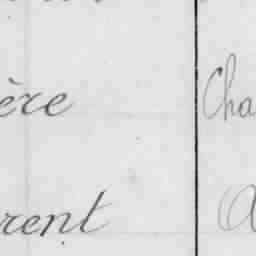 ère Cha
rent a